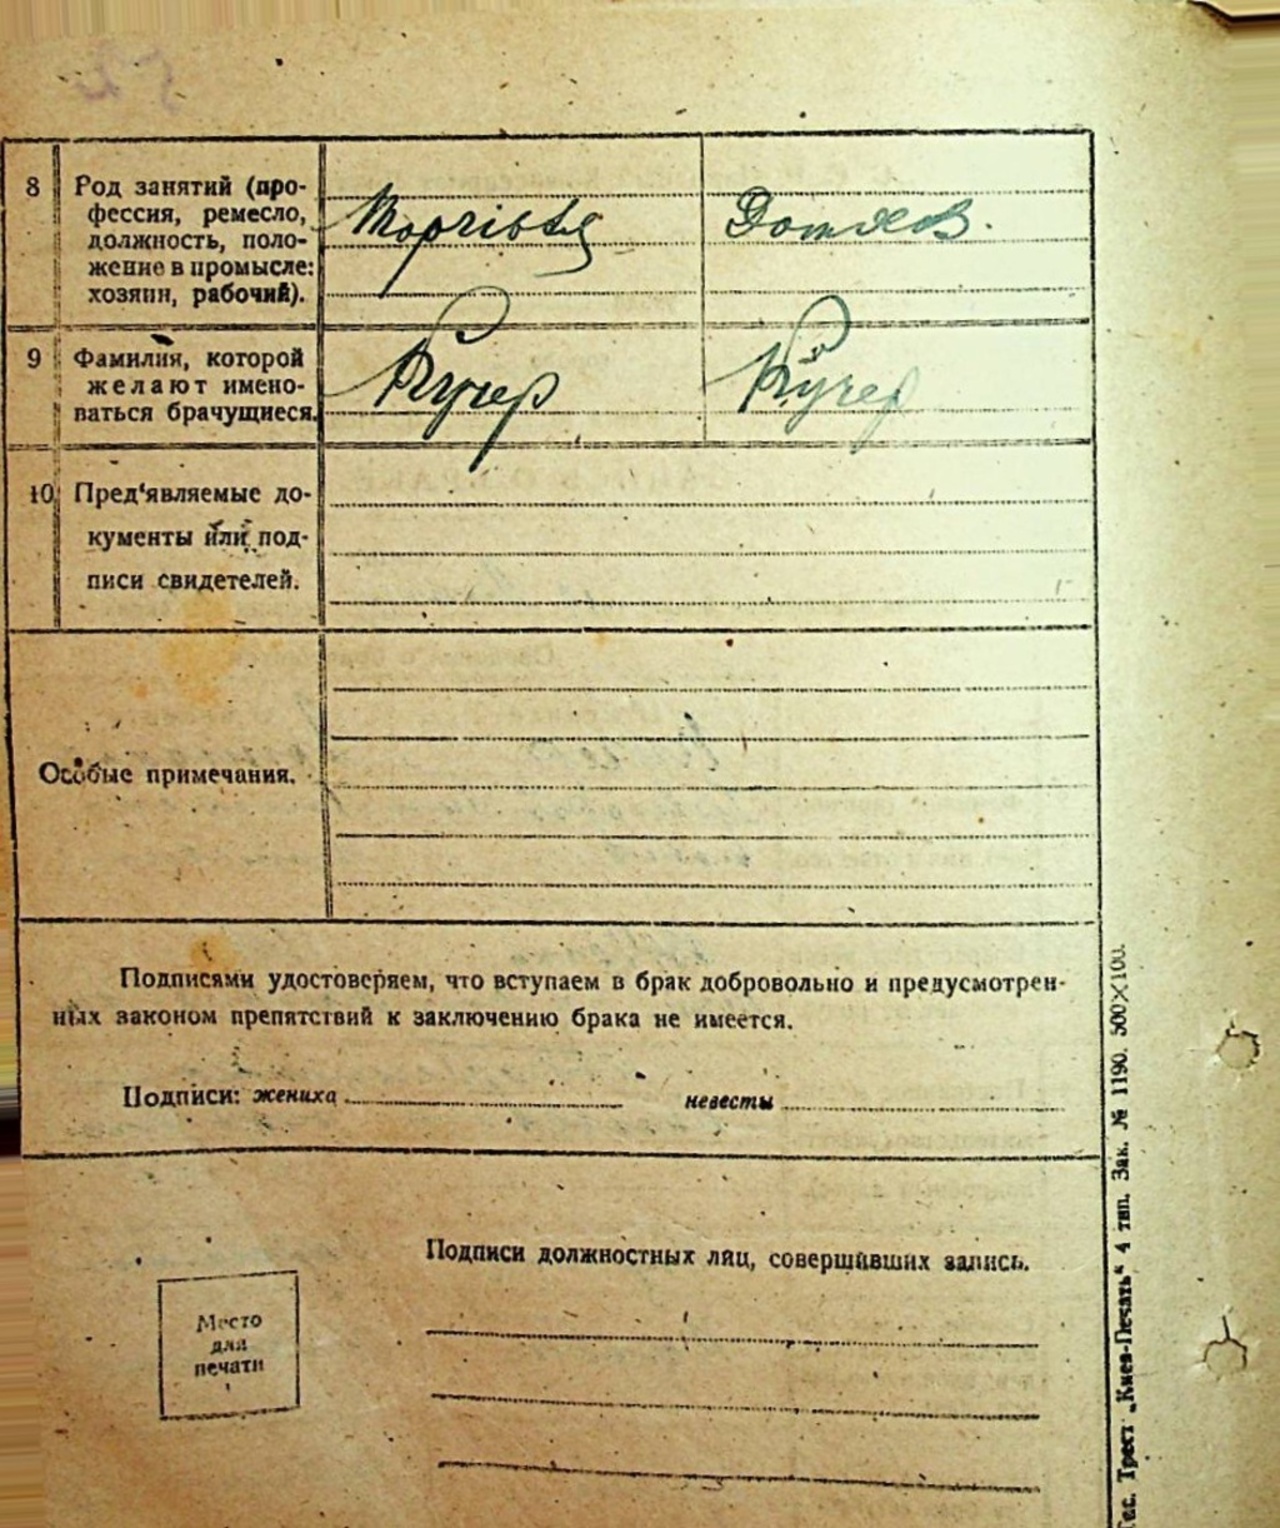 8 Род занятий (про-
фессия, ремесло,
должность, поло-
жение в промысле:
хозяин, рабочий).
Торгівля
9 Фамилия, которой
желают имено-
ваться брачущиеся.
Кучер
Кучер
10. Пред‘являемые до-
кументы или под-
писи свидетелей.
Особые примечания.
Подписями удостоверяем, что вступаем в брак добровольно и предусмотрен-
ных законом препятствий к заключению брака не имеется.
Подписи: жениха
невесты
Подписи должностных лиц, совершивших запись.
Место
для
печати
Гос. Трест „Киев-Печать“ 4 тип. Зак. № 1190. 500×100.